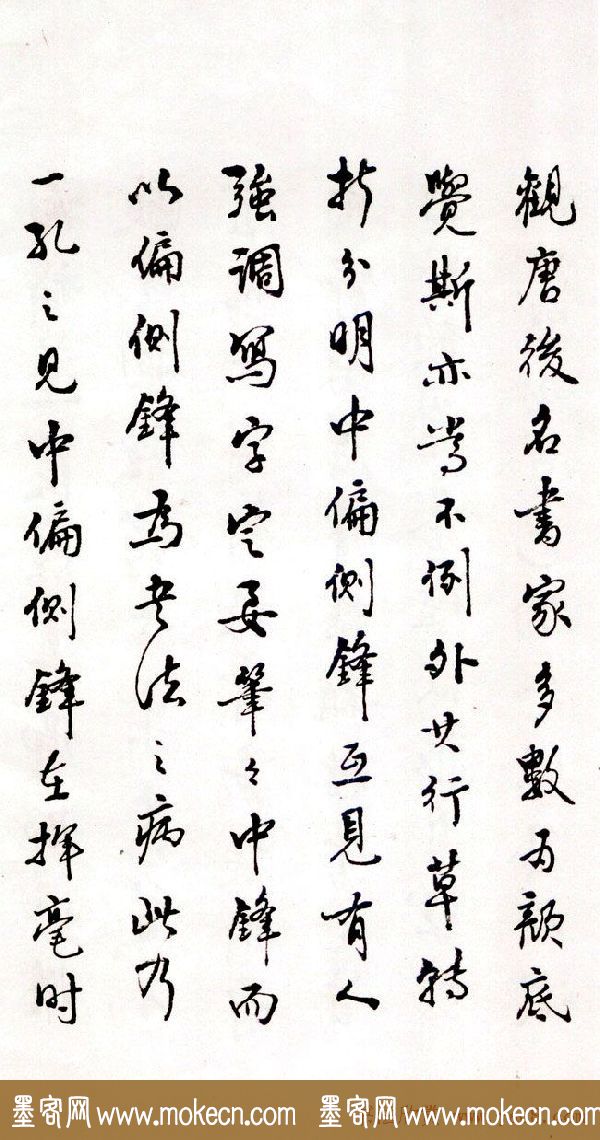 觀唐後名書家多數为顔底
覺斯亦嘗不例外其行草轉
折分明中偏側鋒互見有人
強调寫字定要筆々中鋒而
以偏側鋒為书法之病此乃
一孔之見中偏側鋒在揮毫时
墨客网 www.mokecn.com 墨客网 www.mokecn.com